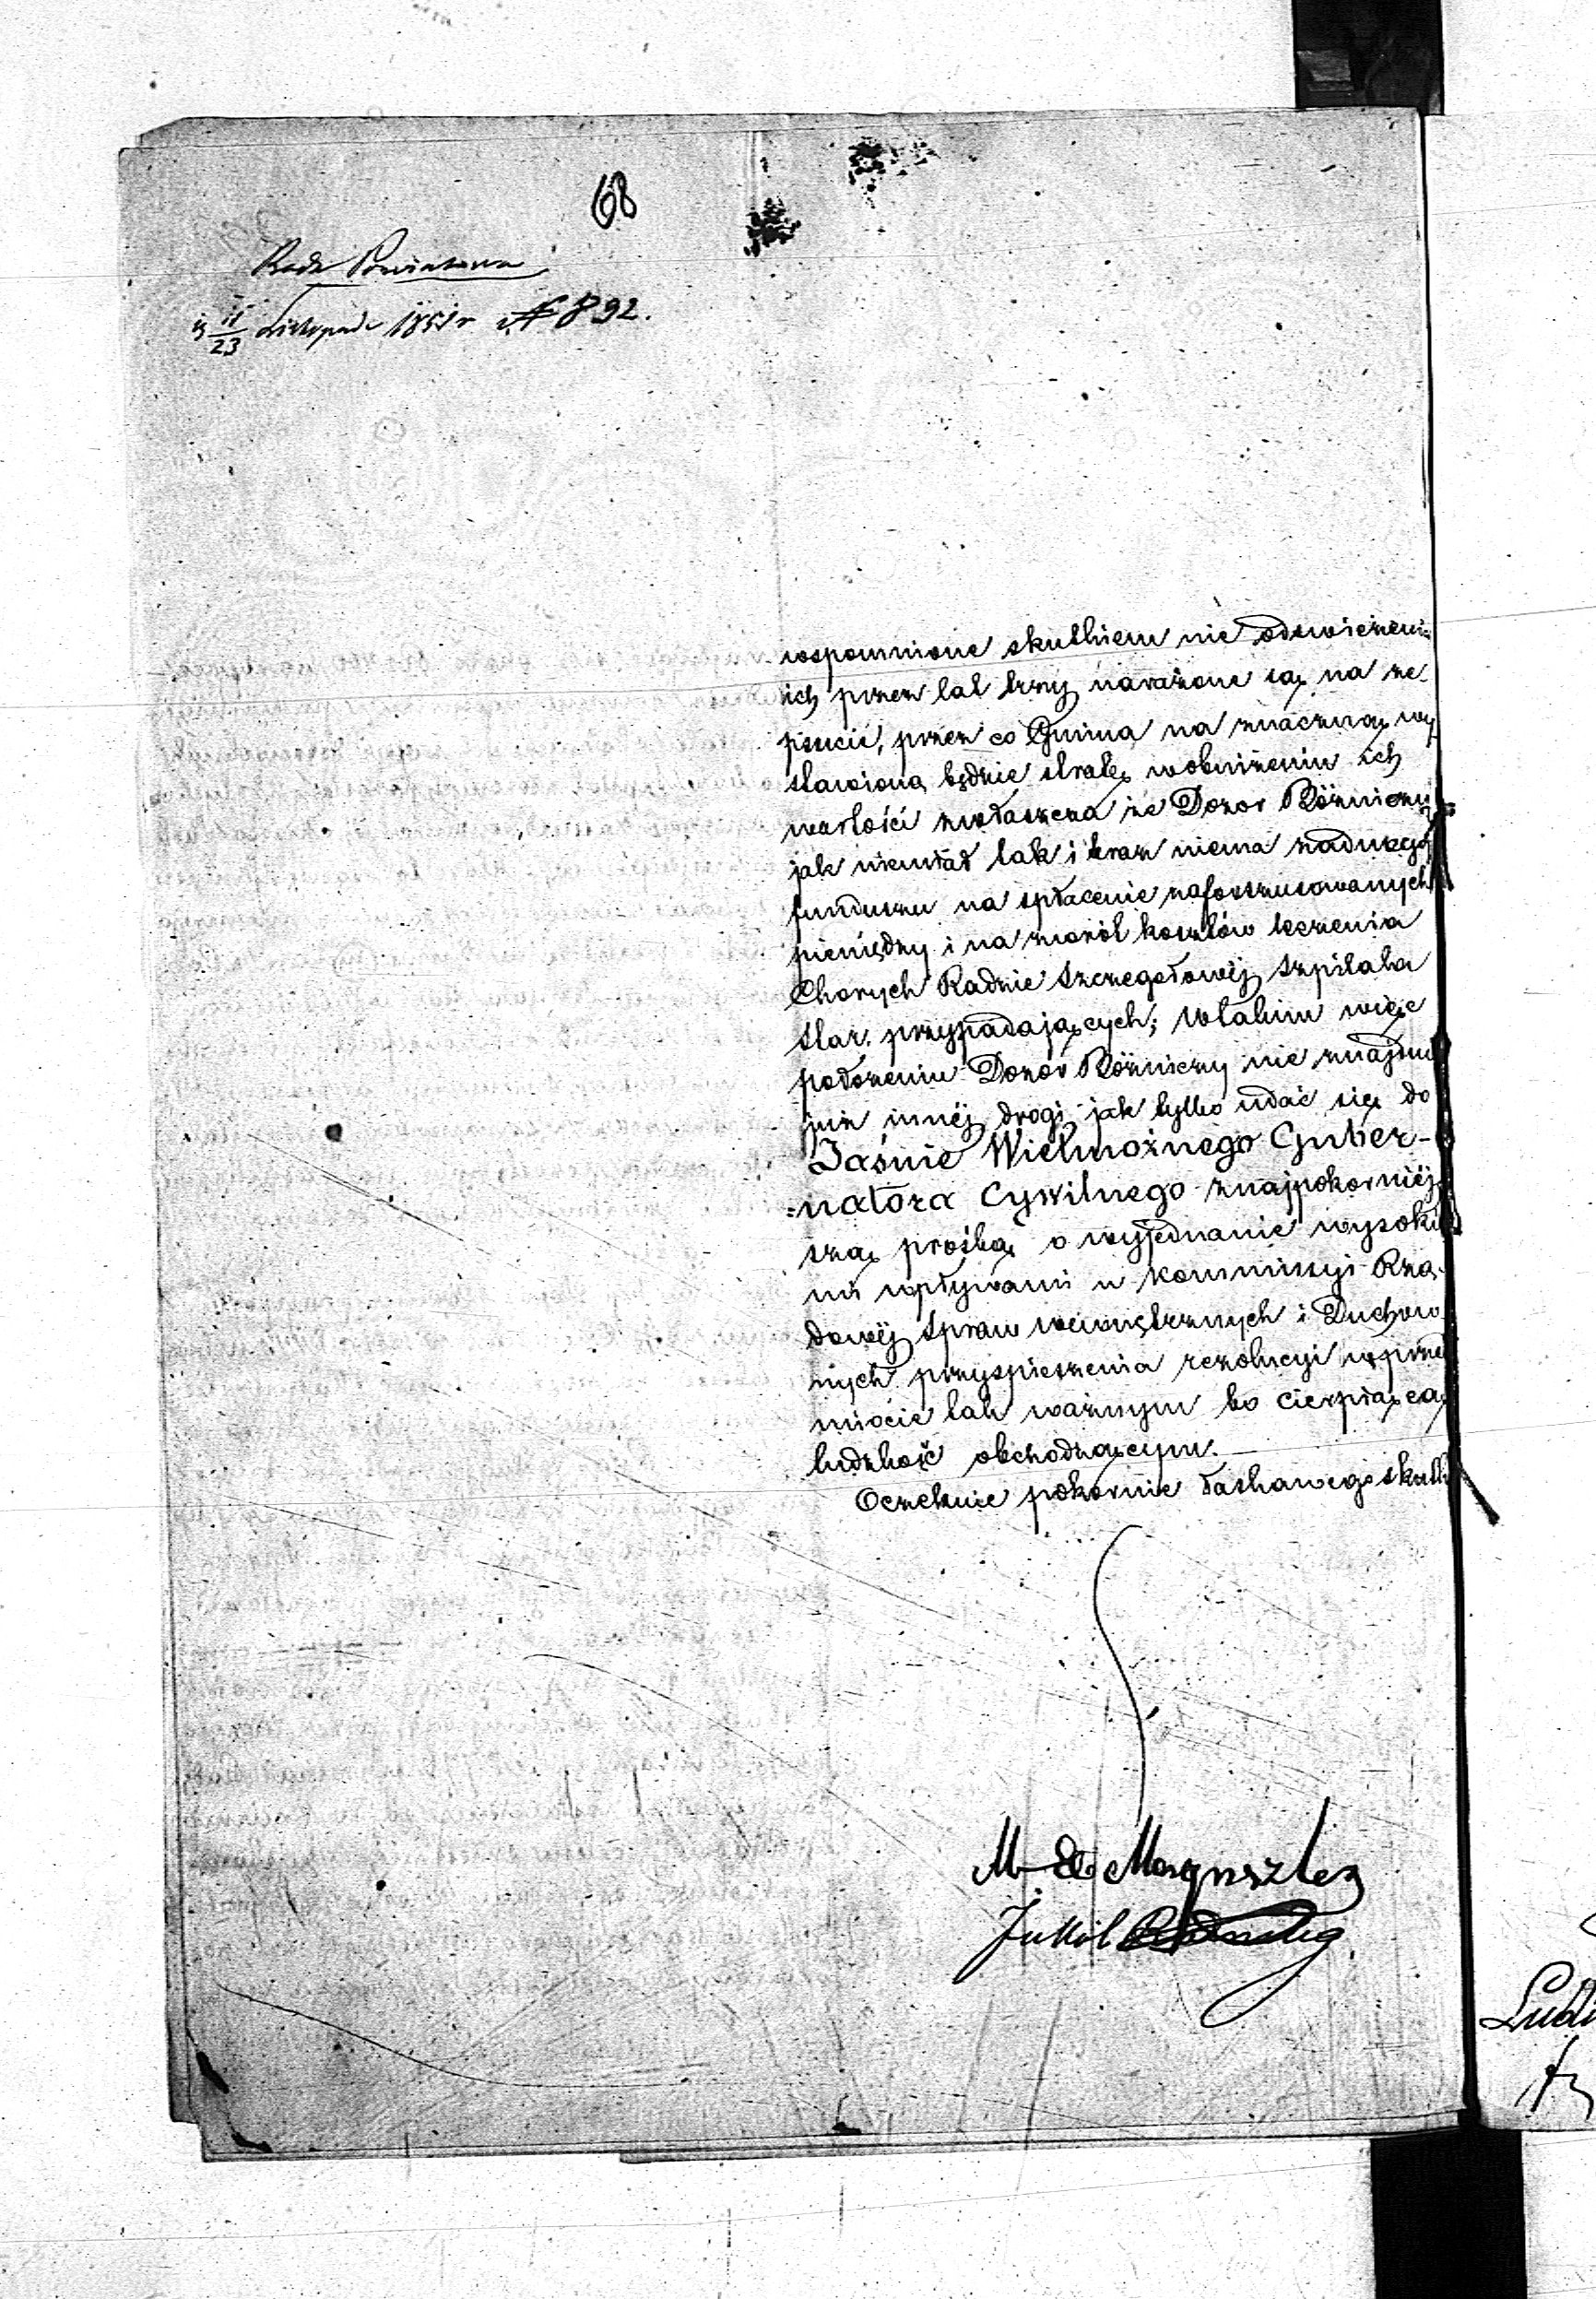 68
Rada Powiatowa
11/23 Listopada 1851 r № 892.
wspomnione skutkiem nie odswieżeni
ich przez lat trzy narażone są na ze-
psucie, przez co Gmina na znaczną wy
stawioną będzie stratę wobniżeniu ich
wartości zwłaszcza że Dozor Bóżniczny
jak niemiał tak i teraz niema żadnego
funduszu na spłacenie zaforszusowanych
pieniędzy i na zwrót kosztów leczenia
Chorych Radzie Szczegołowéj Szpitala
Star. przypadających; wtakim więc
położeniu Dozór Bóżniczny nie znajdu
już innéj drogi jak tylko udać się do
Jaśnie Wielmożnego Guber-
=natora Cywilnego znajpokorniéj
szą prośbą o wyjednanie wysoki
mi wpływami w Kommissyi Rzą-
dowéj Spraw wewnętrznych i Duchow
nych przyspieszenia rezolucyi wprzed
miocie tak ważnym bo cierpiącą
ludzkość obchodzącym.
Oczekuie pokornie łaskawego skutk
M
Jukiel
Ludw